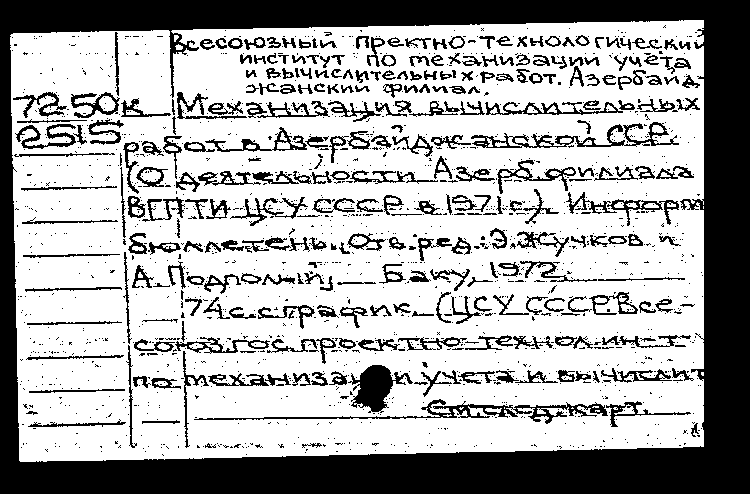 Всесоюзный пректно-технологический
институт по механизации учёта
и вычислительных работ. Азербайд-
жанский филиал.
72-50к Механизация вычислительных
2515 работ в Азербайджанской ССР.
(О деятельности Азерб.филиала
ВГПТИ ЦСУ СССР в 1971г.). Информ
бюллетень. Отв.ред.: Э.Жучков и
А.Подполный, Баку, 1972.
74с.с график. (ЦСУ СССР.Все-
союз.гос.проектно-технол.ин-т
по механизации учета и вычислит
См.след.карт.